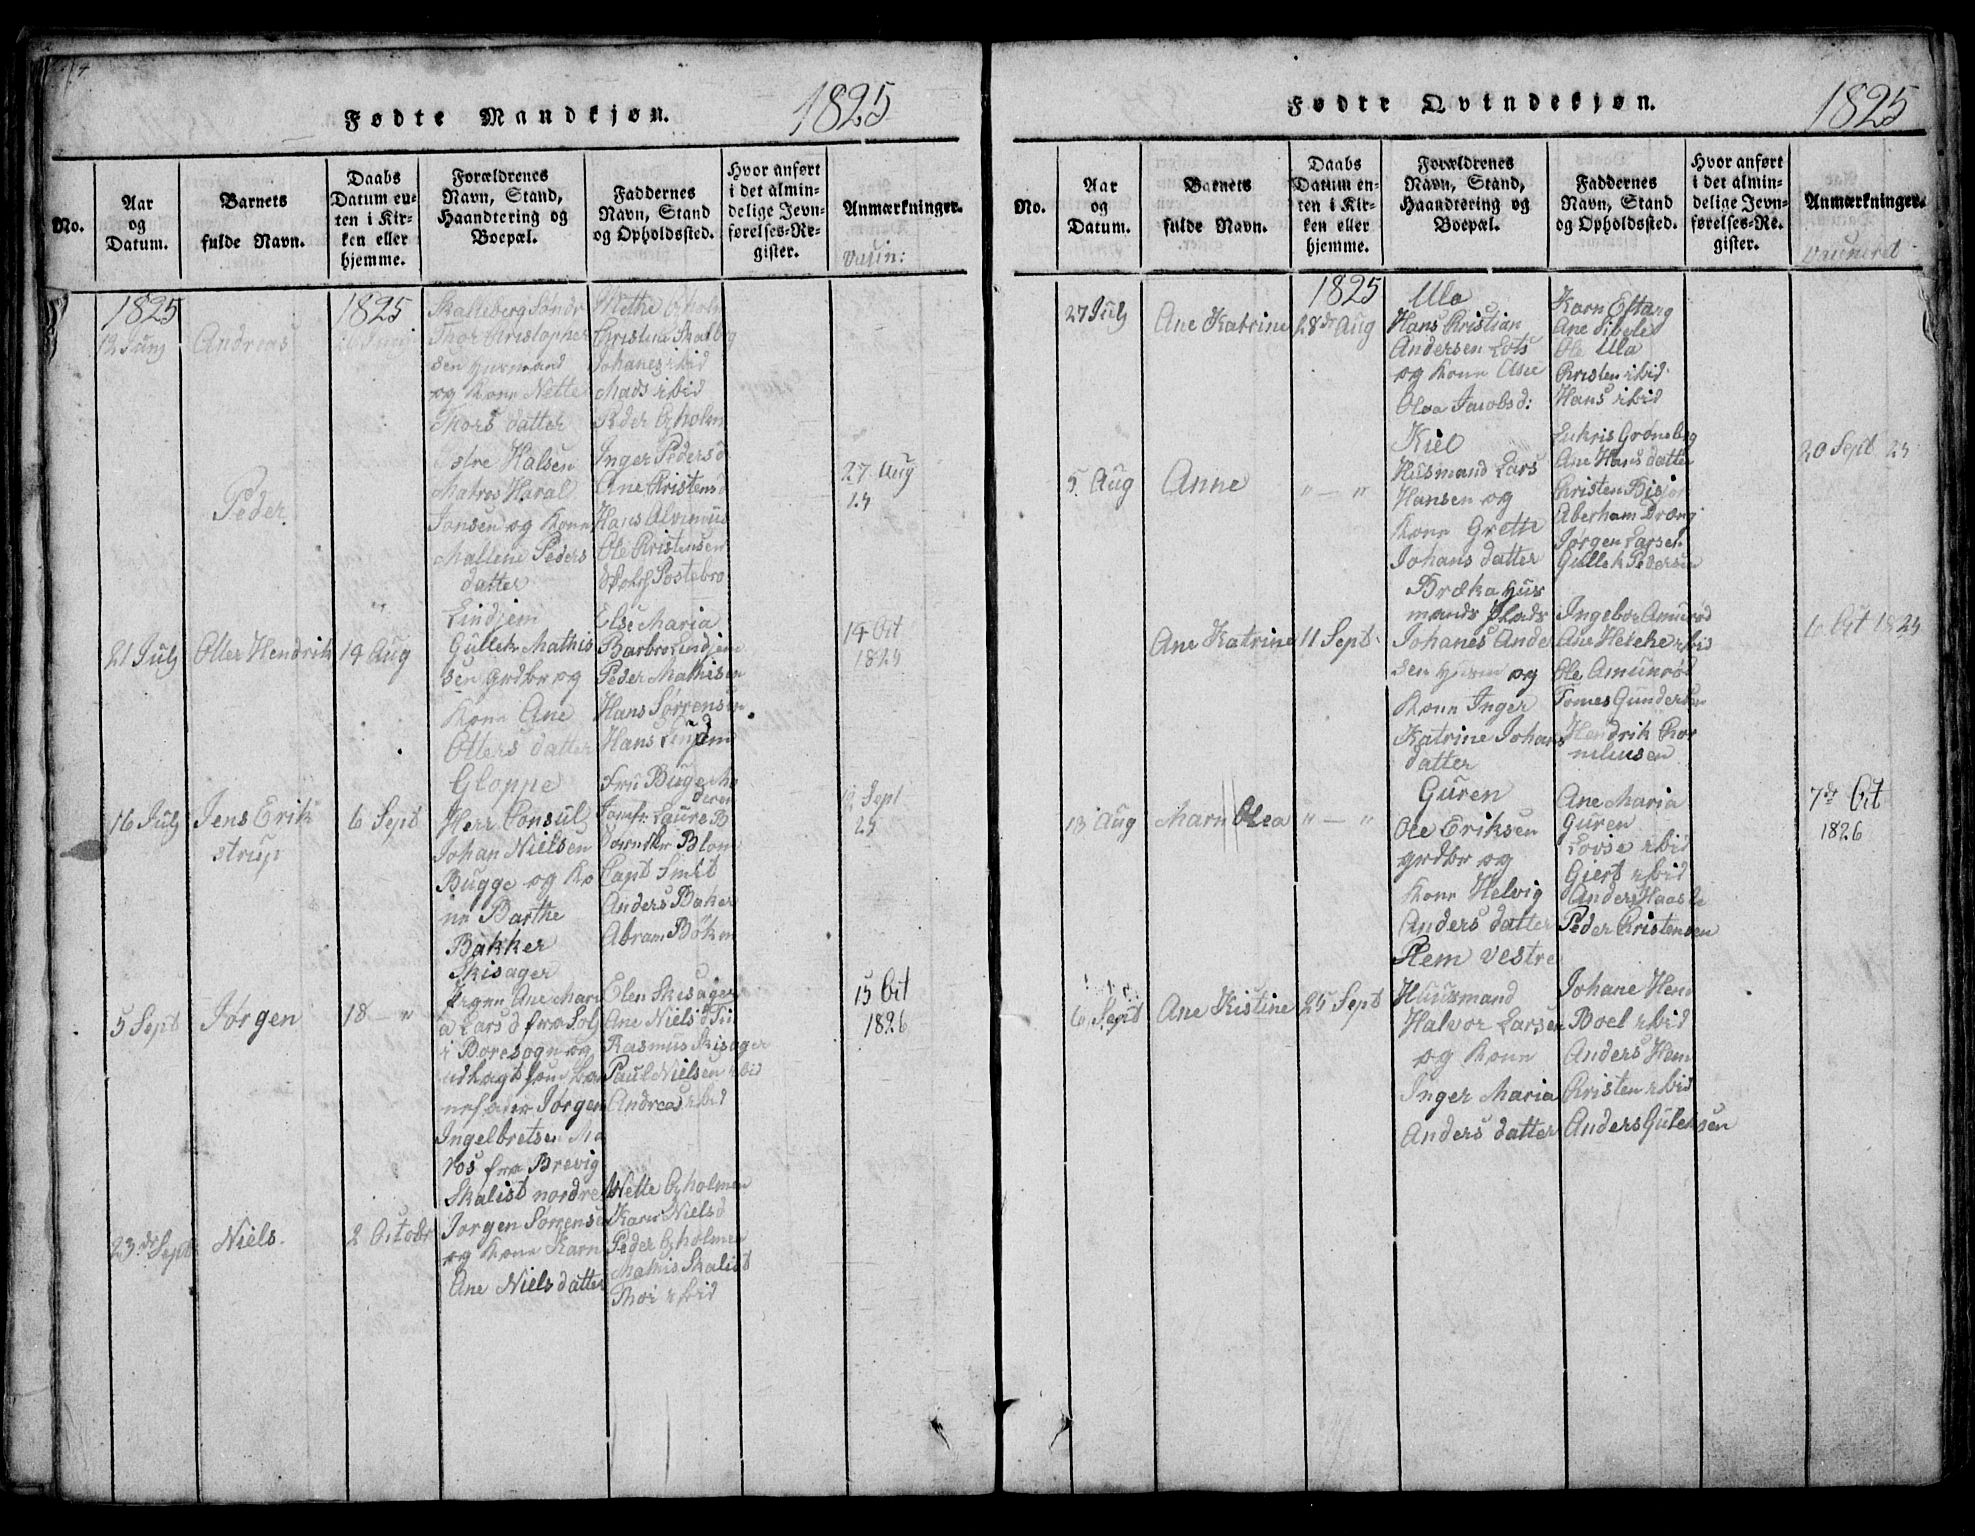 Fødte Mandkjøn. 1825
No.
Aar og Datum.
Barnets fulde Navn.
Daabs Datum enten i Kirken eller hjemme.
Forældrenes Navn, Stand, Haandtering og Boepæl.
Faddernes Navn, Stand og Opholdssted.
Hvor anført i det almindelige Jevnførelses-Register.
Anmærkninger.
1825
12 Junj
Andreas
1825
Skalleberg Søndr
Thor Christopher
sen Husmand
og Kone Nette
Thors datter
Methe Gholm
Christine Skalberg
Johanes ibid
Mads ibid
Peder Gholm
Peder
Østre Halsen
Matros Haral
Jansen og Kone
Mallene Peders
datter
Inger Pedersd
Ane Kristensd
Hans
Ole Kristensen
Postebro
27 Aug
25
21 Julj
Otter Hendrik
14 Aug
Lindjem
Gullek Mathis
sen grdbr og
Kone Ane
Otters datter
Else Maria
Barbro Lindjem
Peder Mathisen
Hans Sørrensen
Hans Lindjem
14 Oct
1825
16 Julj
Jens Erik
strup
6 Sept
Gloppe
Herr Consul
Johan Nielsen
Bugge og Ko
ne Barthe
Bakker
Fru Bugge Mo
deren
Jomfr: Laure B
Blom
Capt Smit
Anders Baker
Abram Bøken
12 Sept
25
5 Sept
Jørgen
18 — "
Skisager
Pigen Ane Mari
a Larsd fra Sol
i Boresogn og
udlagt som Bar
nefader Jørgen
Ingelbretsen Ma
ros fra Brevig
Elen Skisager
Ane Nielsd
Rasmus Skisager
Paul Nielsen ibid
Andreas ibid
15 Oct
1826
23de Sept
Niels.
2 October
Skalist nordre
Jorgen Sørrensen
og Kone Karn
Ane Niels datter
Nette Gholmen
Karn Nielsd
Peder Gholmen
Mathis Skalist
Thor ibid
Fødte Qvindekjøn. 1825
No.
Aar og Datum.
Barnets fulde Navn.
Daabs Datum enten i Kirken eller hjemme.
Forældrenes Navn, Stand, Haandtering og Boepæl.
Faddernes Navn, Stand og Opholdssted.
Hvor anført i det almindelige Jevnførelses-Register.
Anmærkninger.
27 Julj
Ane Katrine
1825
28de Aug
Ula
Hans Kristian
Andersen Lots
og Kone Ane
Olea Jacobsd:
Karn Eftang
Ane Sibele
Ole Ula
Kristen ibid
Hans ibid
5. Aug
Anne
" — "
Kiel
Husmand Lars
Hansen og
Kone Grethe
Johans datter
Grønsberg
Ane Hans datter
Christen
Aberham Dræng
Jørgen Larsen
Gullek Pedersen
20 Sept 25
Ane Katrine
11 Sept
Bræka Hus
mands Plads
Johanes Ander
sen Husm og
Kone Inger
Katrine Johans
datter
Ingebor Amunrød
Ane Helehe ibid
Ole Amunrød
Tomes Gundersen
Hendrik Kor
neliusen
6 Oct 1825
13 Aug
Marn Olea
" — "
Guren
Ole Eriksen
grdbr og
Kone Helvig
Anders datter
Ane Maria
Guren
Lovse ibid
Giert ibid
Anders Haasle
Peder Kristensen
7de Oct
1826
6 Sept
Ane Kistine
25 Sept
Hem vestre
Huusmand
Halvor Larsen
og Kone
Inger Maria
Anders datter
Johane Hem
Boel ibid
Anders Hem
Kristen ibid
Anders Gulleksen